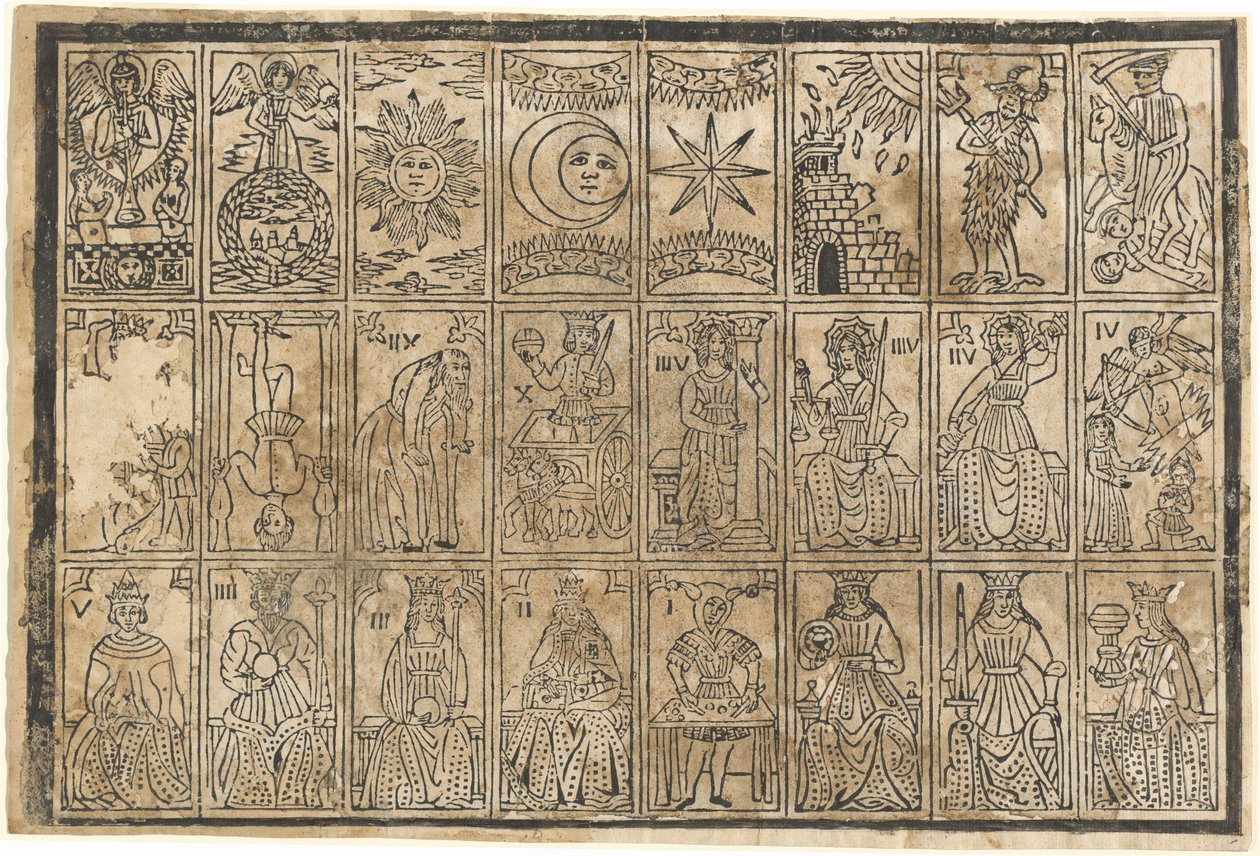 IIX
X
IIIV
IIIIV
IIV
IV
V
IIII
III
II
I